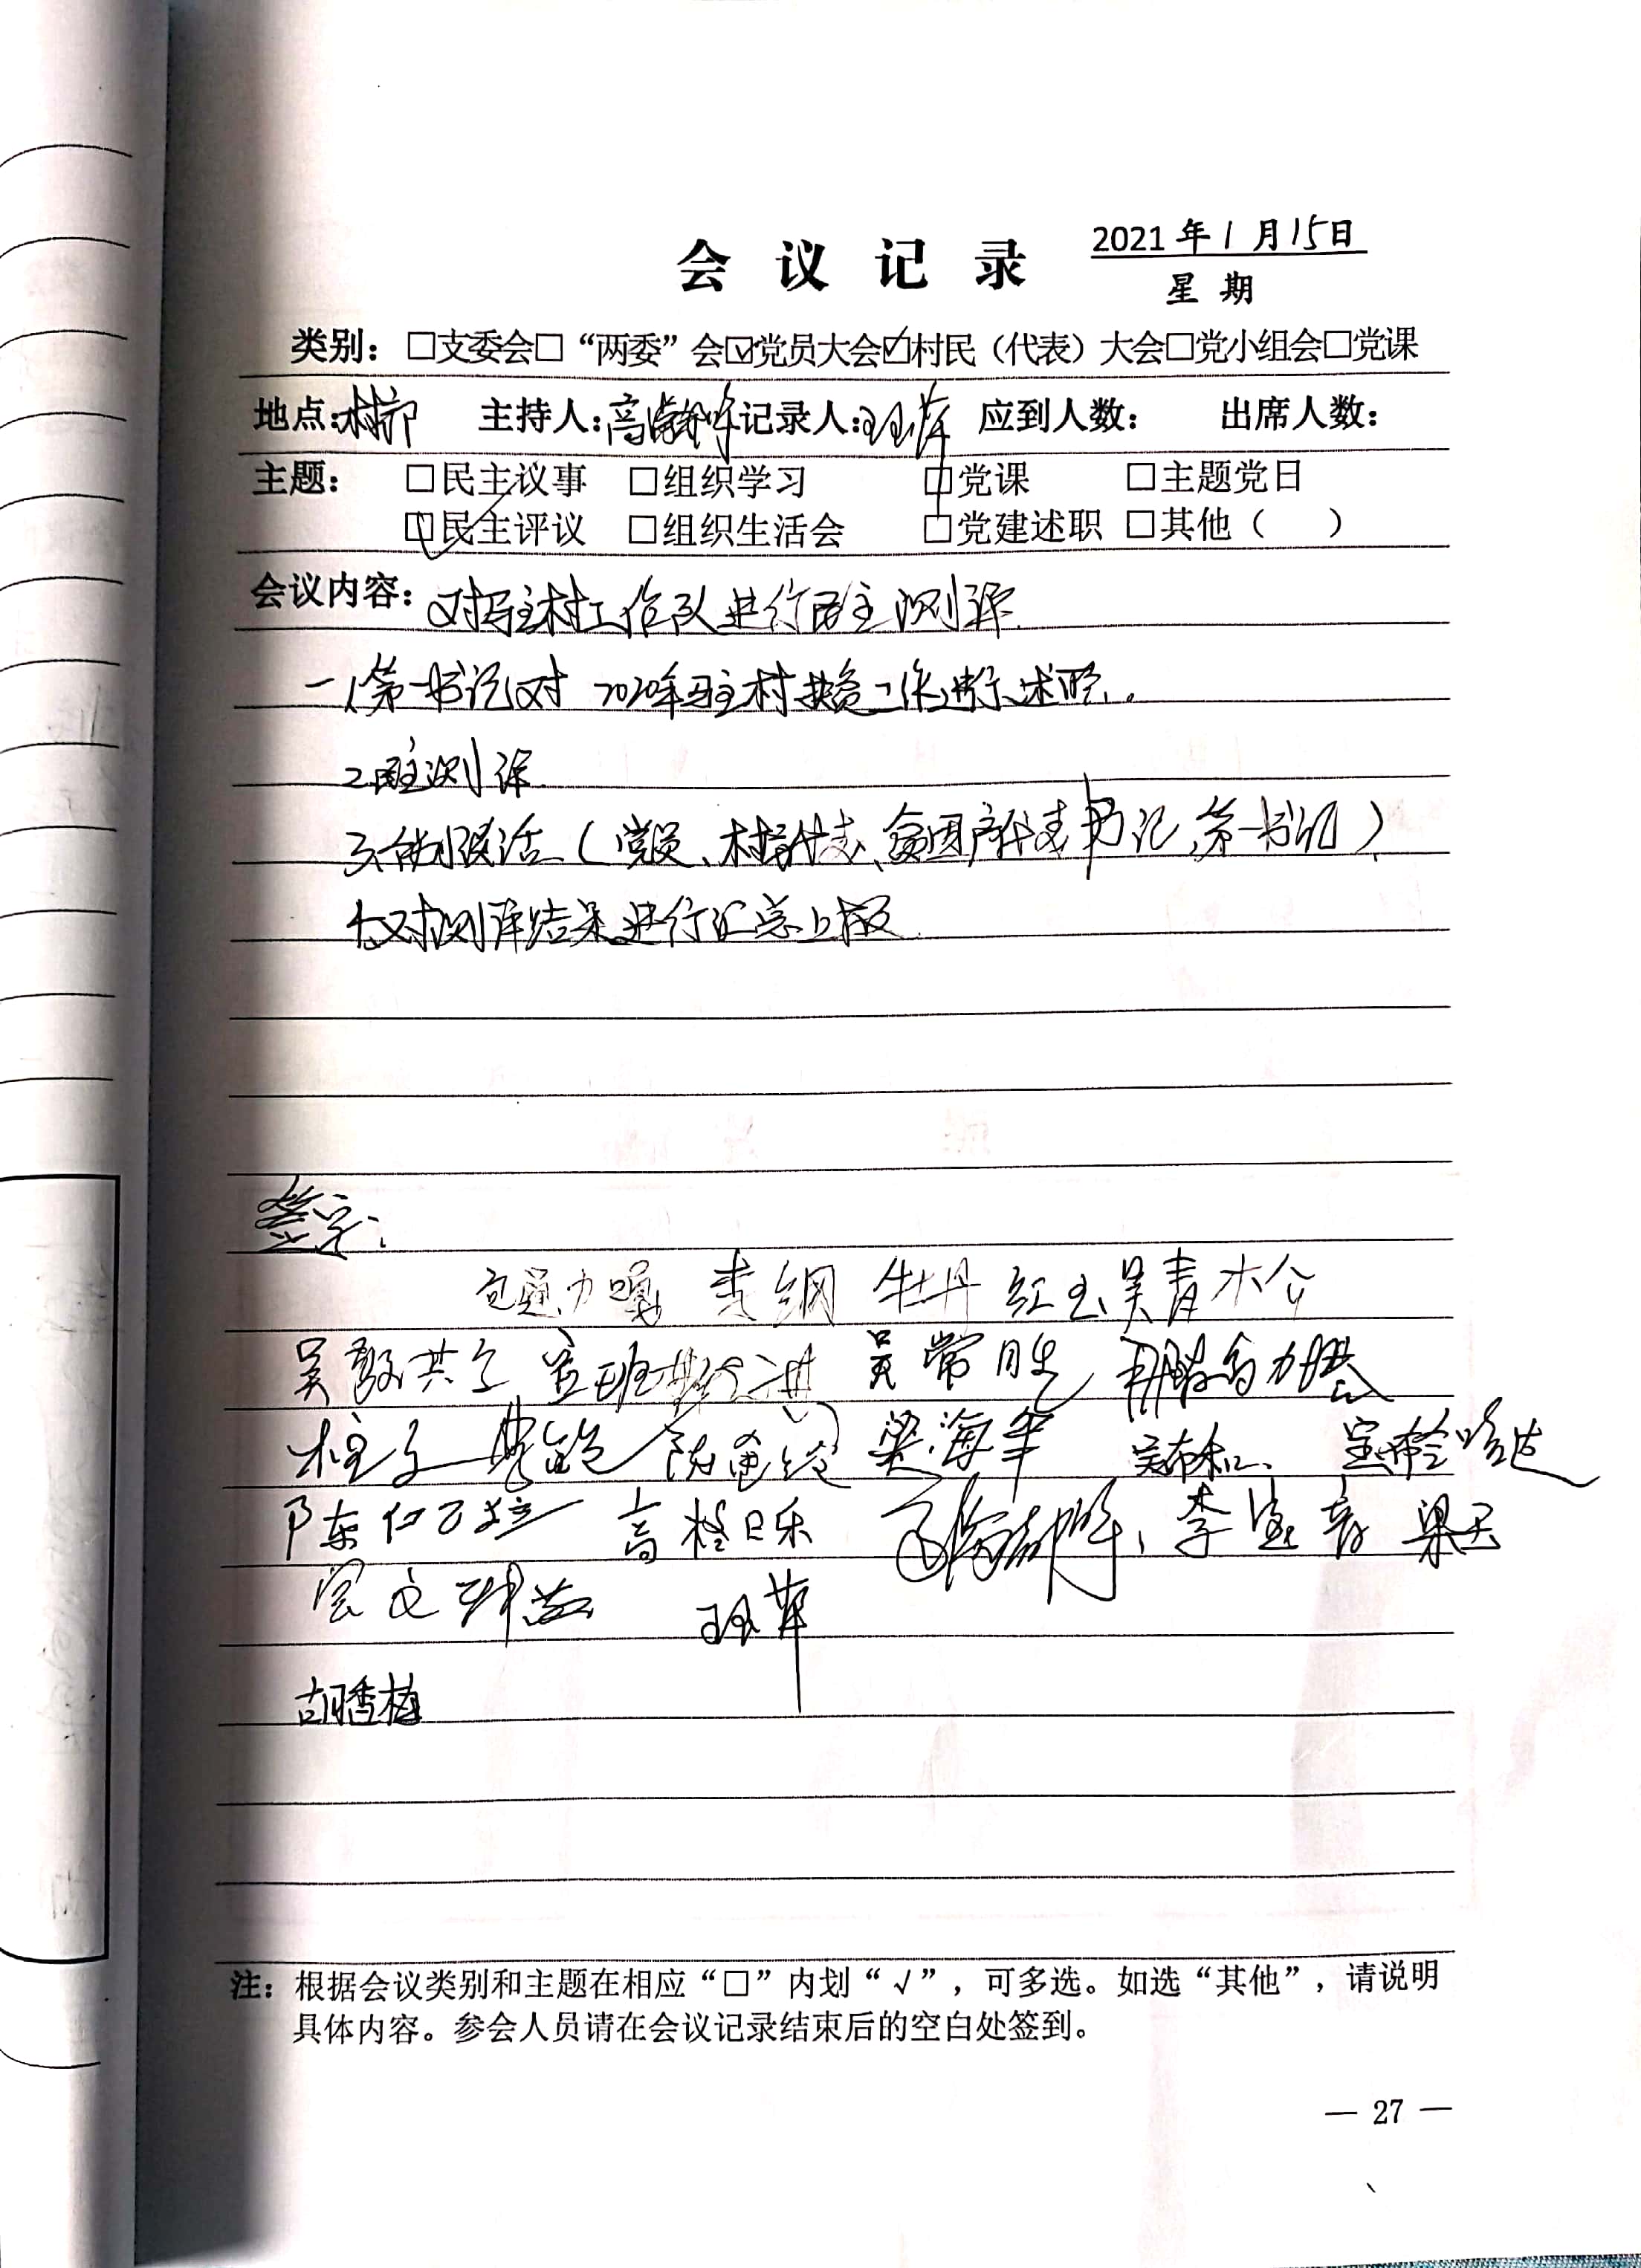 会议记录 2021年1月15日
星期
类别：□支委会□“两委”会☑党员大会☑村民（代表）大会□党小组会□党课
地点：村部 主持人：高 记录人： 应到人数： 出席人数：
主题： □民主议事 □组织学习 □党课 □主题党日
☑民主评议 □组织生活会 □党建述职 □其他（ ）
会议内容：对驻村工作队进行民主测评.
一1.第一书记对2020年驻村扶贫工作进行述职。
2.民主测评.
3.个别谈话（党员、村民代表、贫困户代表书记,第一书记）
4.对测评结果进行汇总上报.
签字：
包通力嘎 青纲 牡丹 红玉 吴青木介
吴 吴常胜
柱子 梁海军 吴布和
陈 高格日乐 李 梁
宝文
胡香梅
注：根据会议类别和主题在相应“□”内划“√”，可多选。如选“其他”，请说明
具体内容。参会人员请在会议记录结束后的空白处签到。
— 27 —